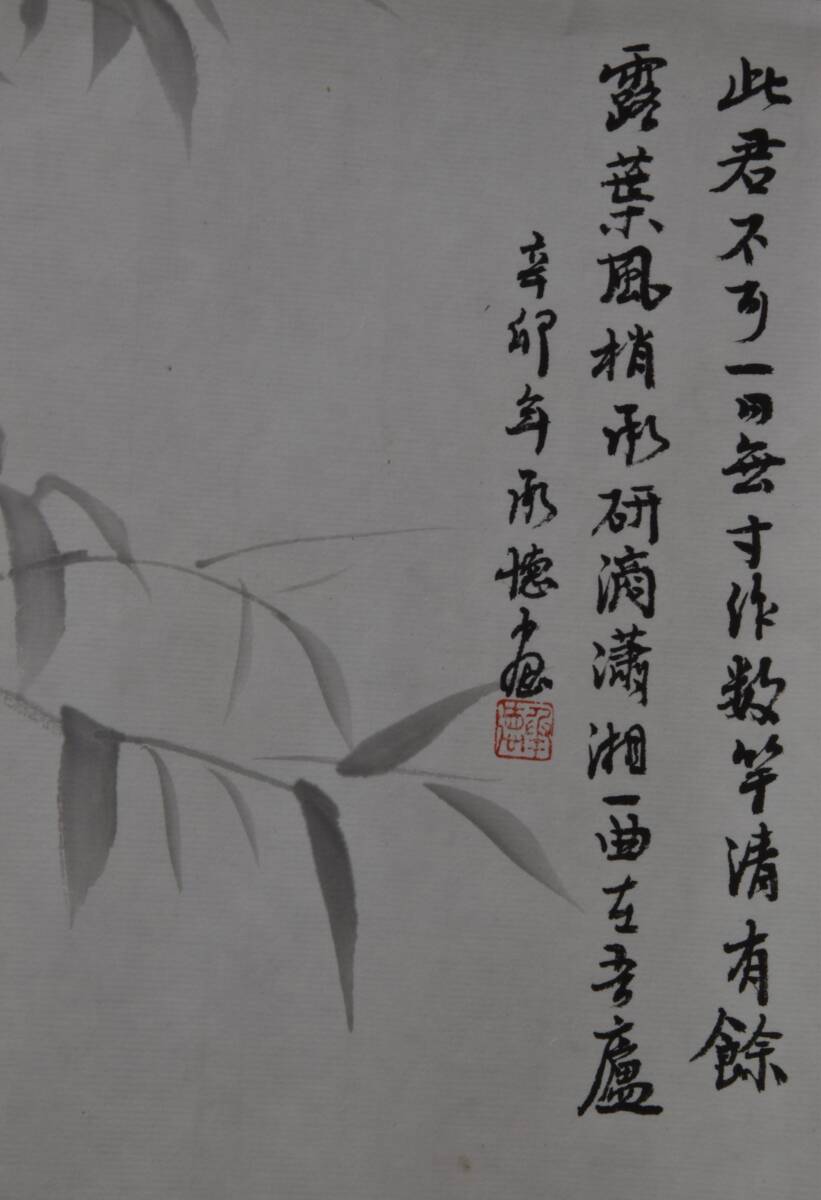 此君不可一日無寸作数竿清有餘
露葉風梢承研滴瀟湘一曲在吾廬
辛卯年承德